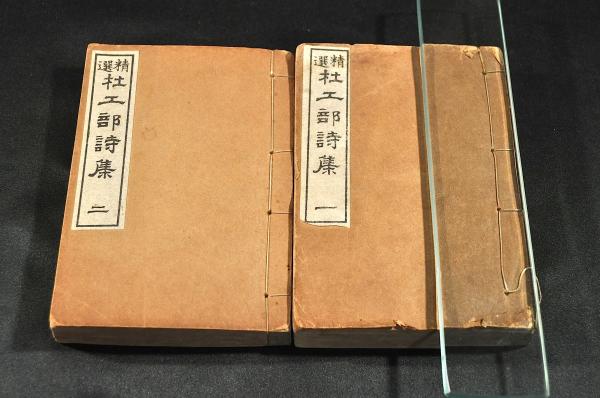 精選
杜工部詩集 一
精選
杜工部詩集 二